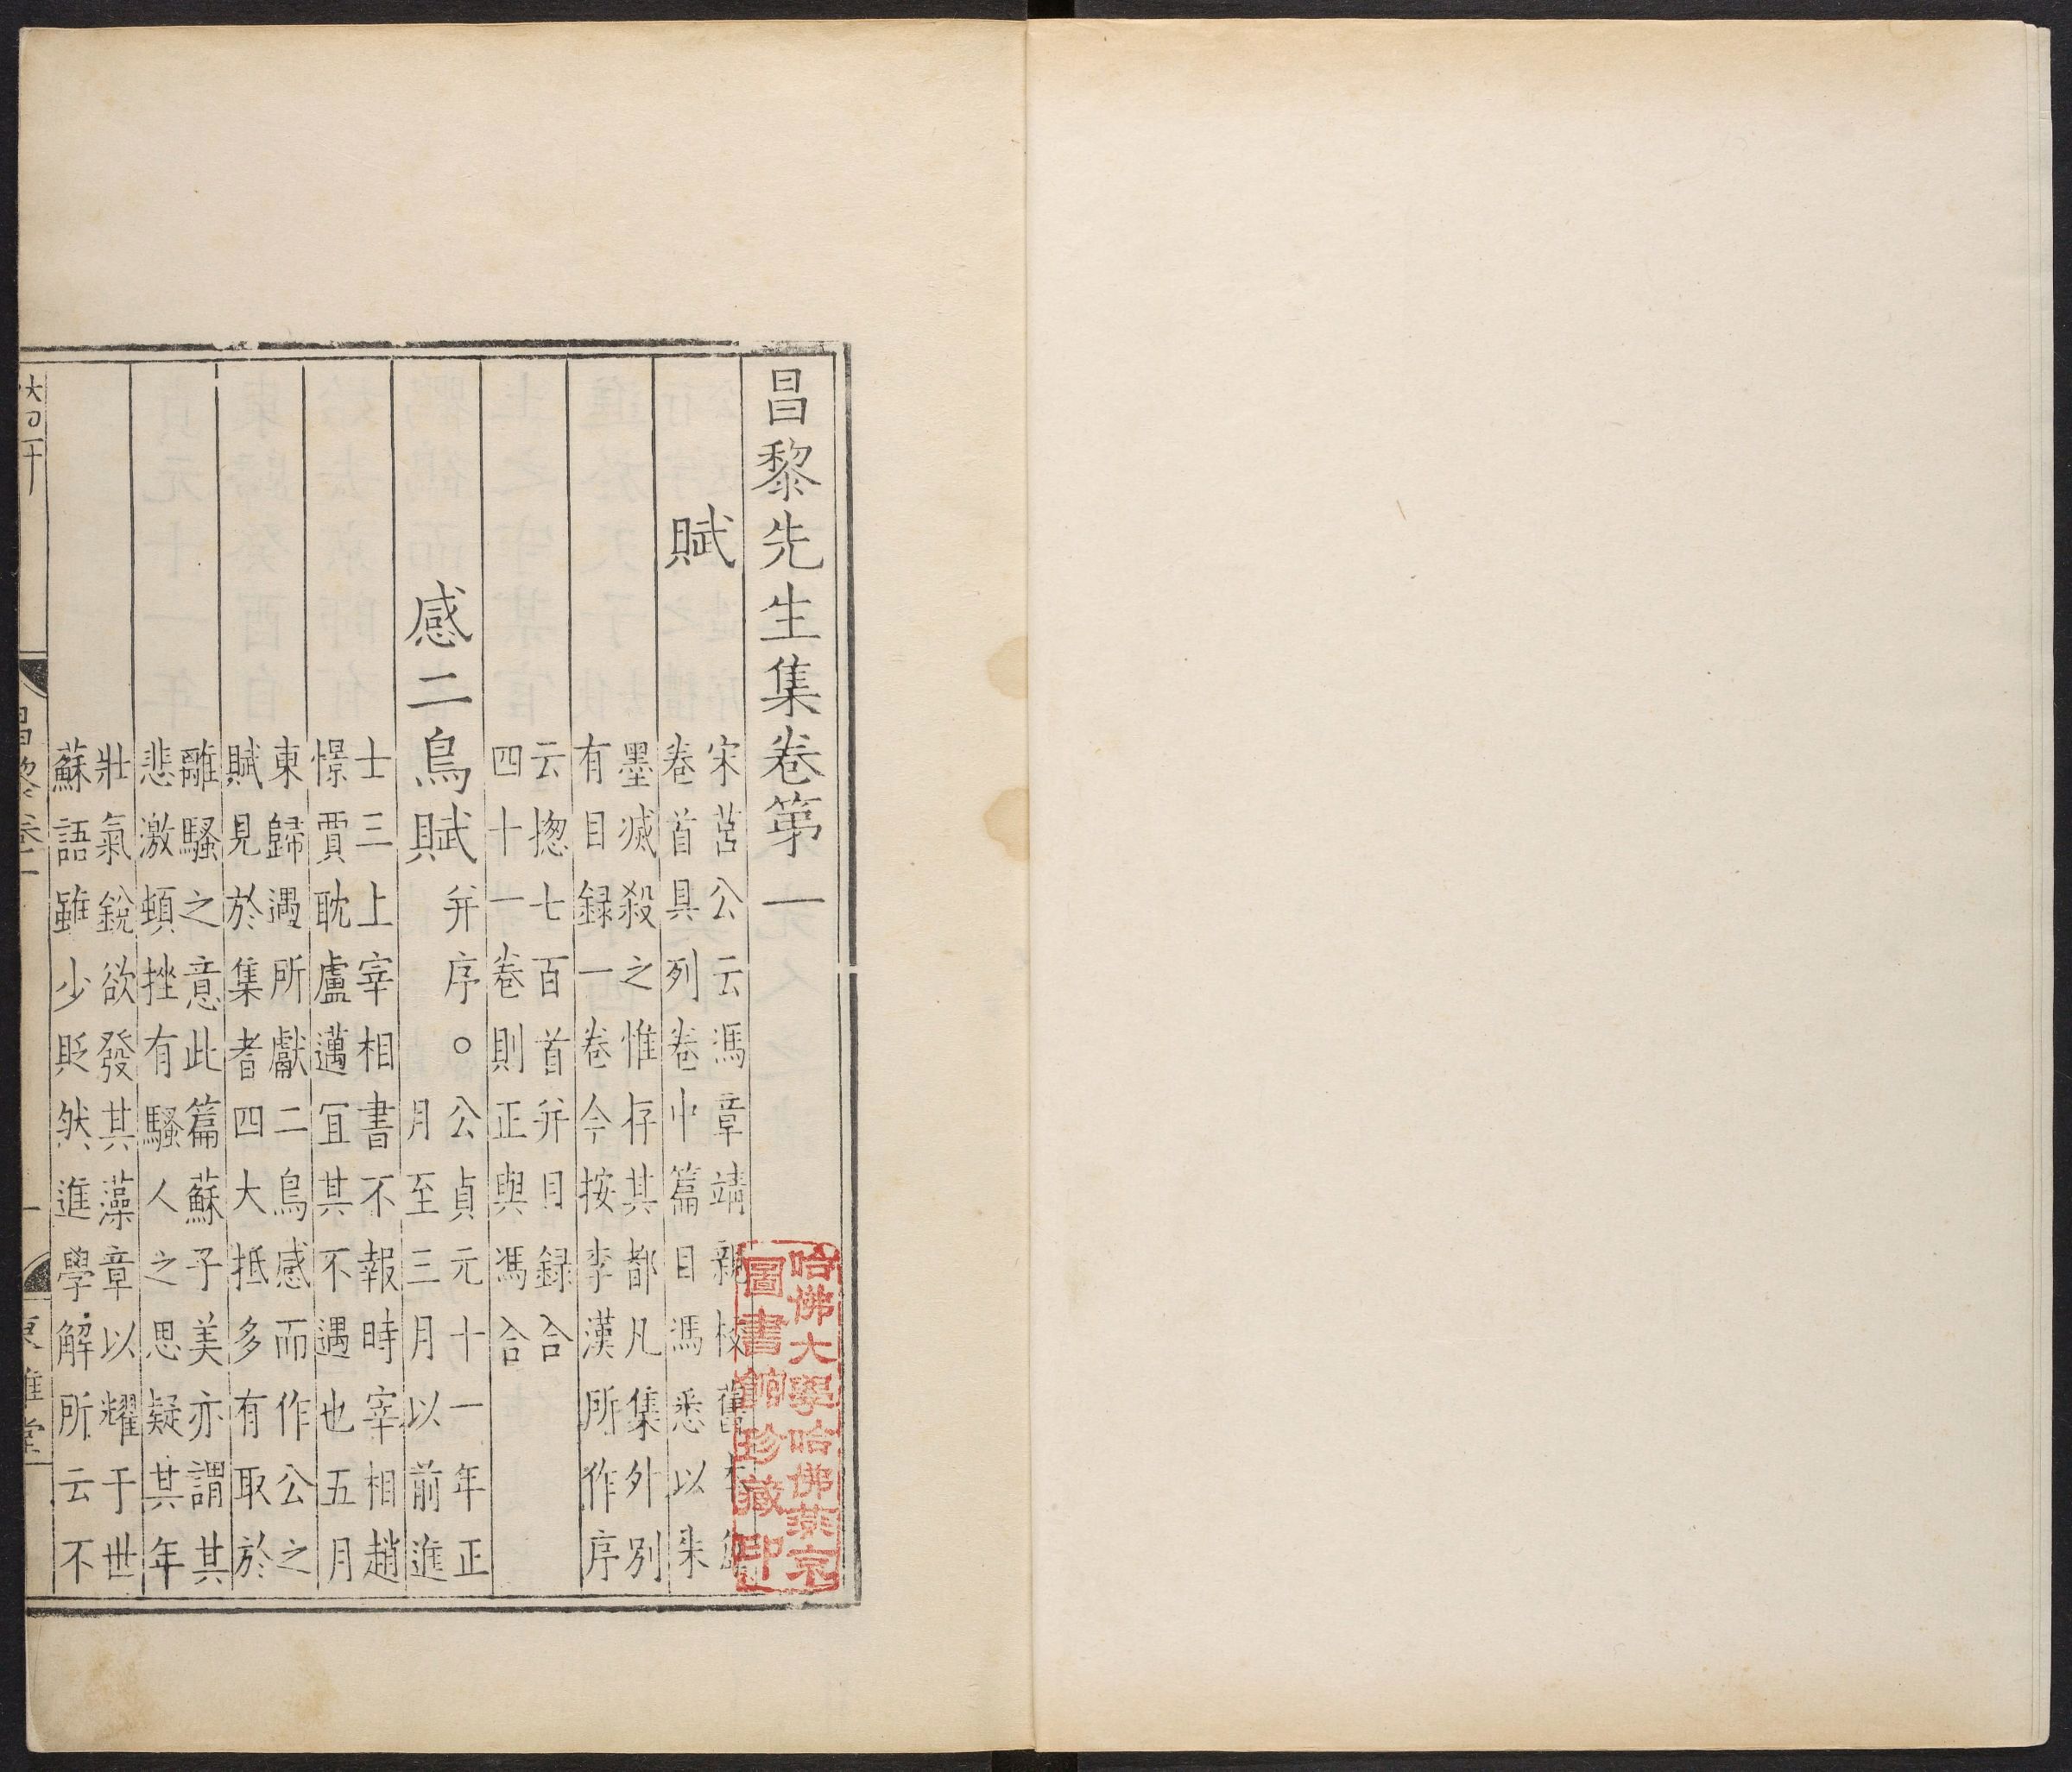 昌黎先生集卷第一
賦
宋莒公云馮章靖親校舊
卷首具列卷中篇目馮悉以朱
墨滅殺之惟存其都凡集外别
有目録一卷今按李漢所作序
云揔七百首并目録合
四十一卷則正與馮合
感二鳥賦
并序○公貞元十一年正
月至三月以前進
士三上宰相書不報時宰相趙
憬賈耽盧邁冝其不遇也五月
東歸遇所獻二鳥感而作公之
賦見於集者四大抵多有取於
離騷之意此篇蘇子美亦謂其
悲激頓挫有騷人之思疑其年
壯氣銳欲發其藻章以耀于世
蘇語雖少貶然進學解所云不
昌黎卷一
一
東雅堂
哈佛大學哈佛燕京
圖書館珍藏印